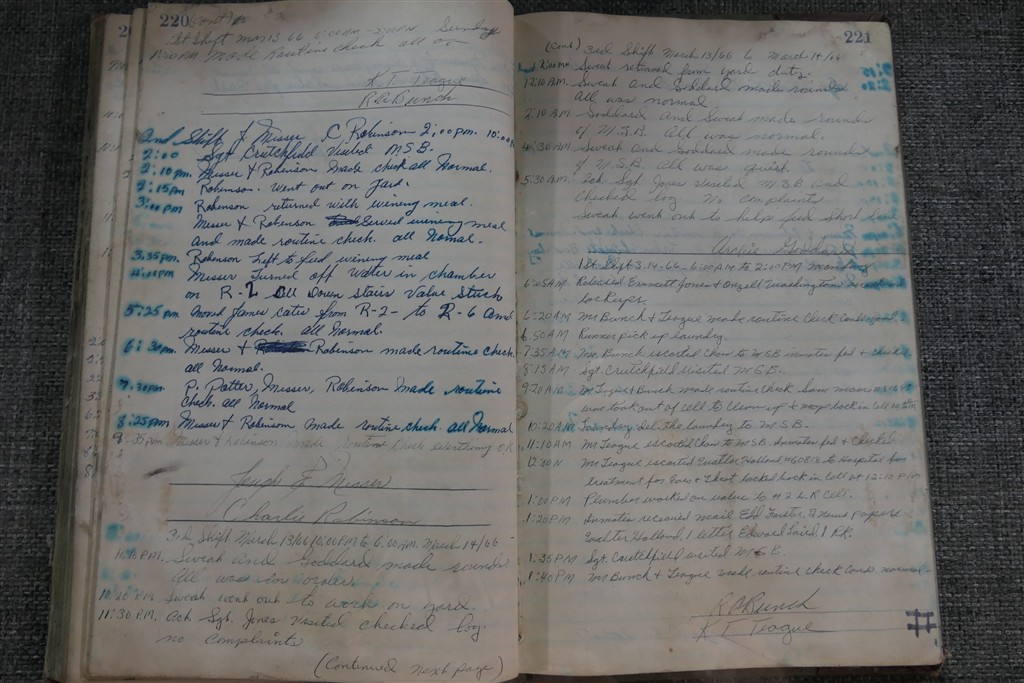 220 (cont)
1st Shift Mar 13 66 6:00 AM - 2:00 PM Sunday
made routine check all
K T Teague
R C Bunch
2nd Shift J Messer C Robinson 2:00 pm. 10:00
2:00 Sgt Crutchfield Visited M.S.B.
2:10 pm. Messer & Robinson Made check all Normal.
2:15 pm Robinson. Went out on yard.
3:00 pm Robinson returned with evening meal.
Messer & Robinson Served evening meal
and made routine check. all Normal.
3:35 pm. Robinson Left to feed evening meal
4:00 pm Messer Turned off Water in chamber
on R-2 All Down stairs Value Stuck
5:25 pm Moved James cates from R-2- to R-6 and
routine check. all Normal.
6:30 pm. Messer & Robinson made routine check.
all Normal.
7:30 pm P. Potter, Messer, Robinson Made routine
check. all Normal
8:25 pm Messer & Robinson made routine check. all Normal
9:35 pm Messer & Robinson made routine check everything O.K.
Joseph J Messer
Charlie Robinson
3rd Shift March 13/66 10:00 PM to 6:00 AM. March 14/66
10:10 P.M. Sweat and Goddard made rounds
All was in order.
Sweat went out to work on yard.
11:30 P.M. Act. Sgt. Jones Visited checked log.
no complaints
(Continued next page)
221
(Cont) 3rd Shift March 13/66 to March 14/66
12:00 AM Sweat returned from yard duty.
12:10 A.M. Sweat and Goddard made rounds
All was normal
2:10 A.M. Goddard and Sweat made rounds
of M.S.B. All was normal.
4:30 A.M. Sweat and Goddard made rounds
of M.S.B. All was quiet.
5:30 A.M. Act. Sgt. Jones Visited M.S.B and
Checked log No complaints
Sweat went out to help feed short line
Archie Goddard
1st Shift 3-14-66 - 6:00 AM to 2:00 PM Monday
6:05 AM Released Emmett Jones & Onzell Washington
lockups.
6:20 AM Mr Bunch & Teague made routine Check
6:50 AM Runner pick up laundry.
7:35 AM Mr. Bunch escorted Chow to M.S.B inmates fed & checked
8:15 AM Sgt. Crutchfield Visited M.S.B.
9:20 AM Mr Teague & Bunch made routine check.
was took out of cell to clean up & mop back in cell
10:20 AM laundry to M.S.B.
11:10 AM Mr Teague escorted Chow to M.S.B. inmates fed & Checked
12:00 N Mr Teague escorted Holland #60818 to Hospital for
treatment for Eyes & throat locked back in cell at 12:10 PM
1:00 PM Plumber worked on value to #2 L.R Cell.
1:20 PM Inmates received mail News paper
Holland, 1 letter Edward Laird 1 PK.
1:35 PM Sgt. Crutchfield visited M.S.B.
1:40 PM Mr Bunch & Teague made routine check Cond. normal
R C Bunch
K T Teague
#